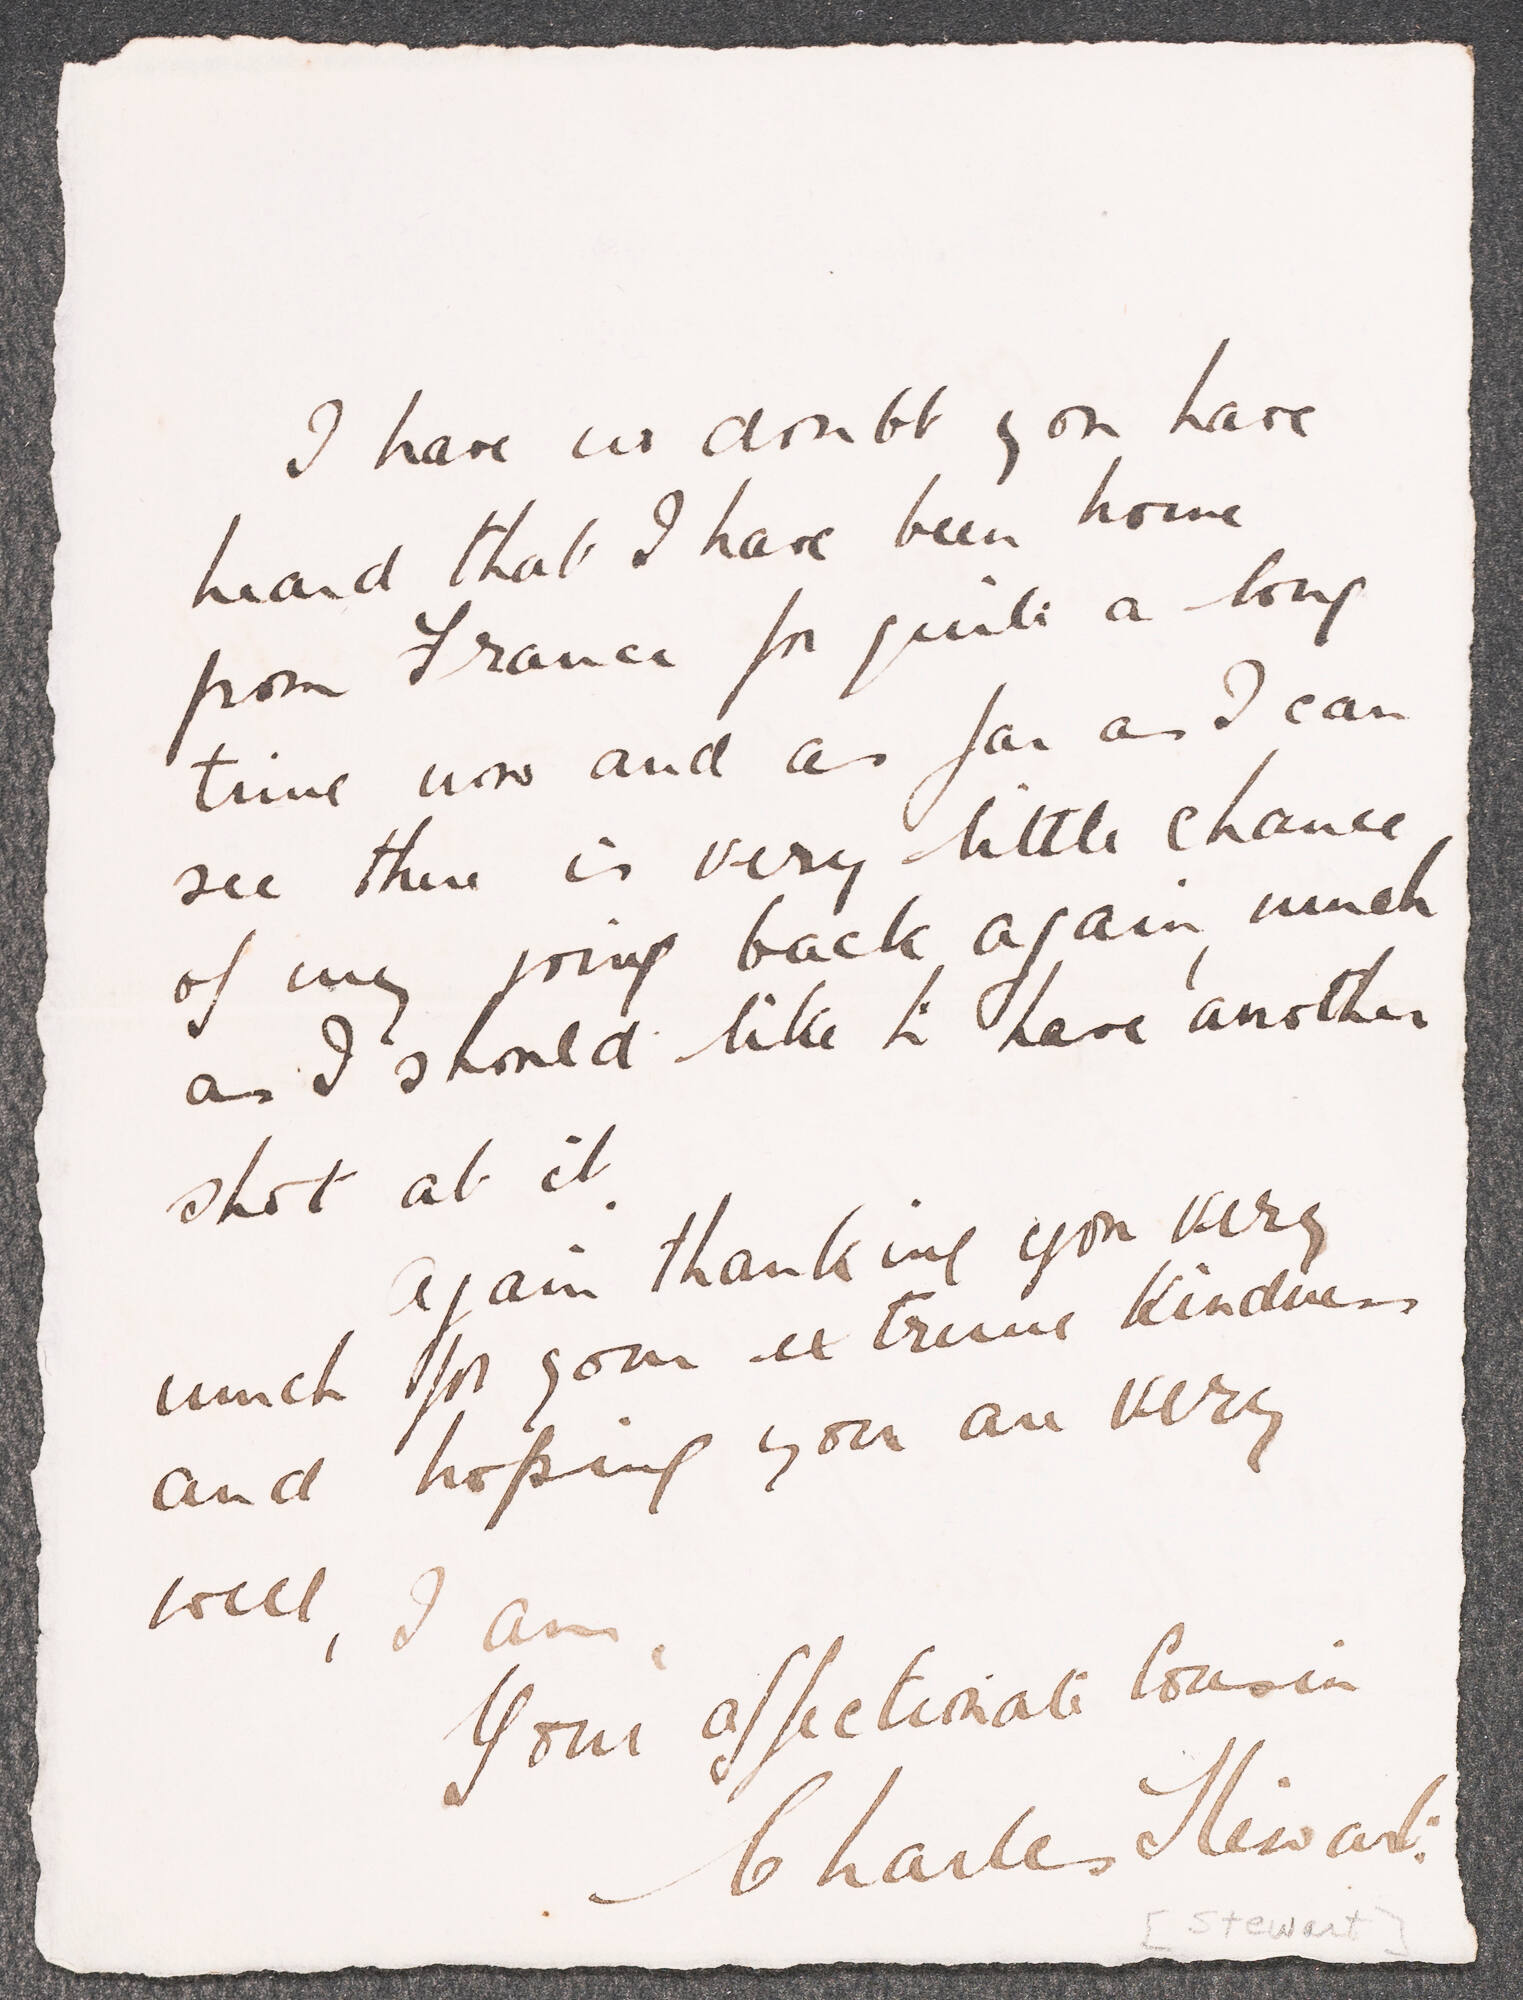 I have no doubt you have
heard that I have been home
from France for quite a long
time now and as far as I can
see there is very little chance
of my going back again, much
as I should like to have another
shot at it.
Again thanking you very
much for your extreme kindness
and hoping you are very
well, I am,
Your affectionate Cousin
Charles Stewart.
[Stewart]